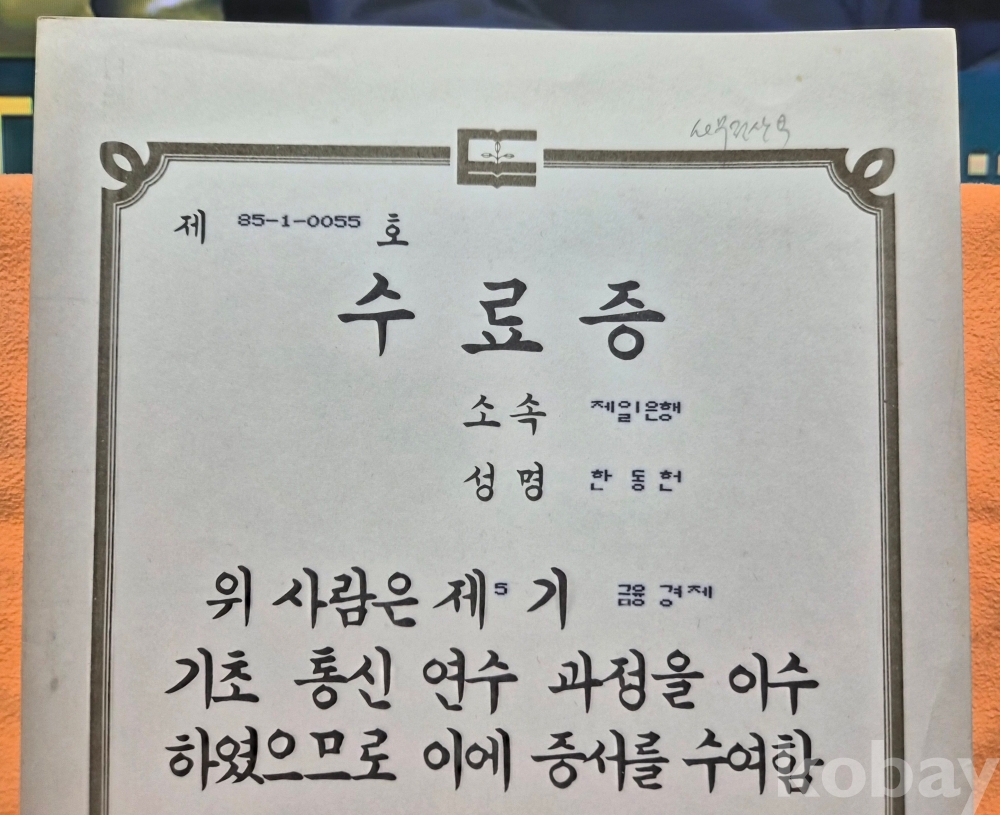 제 85-1-0055 호
수 료 증
소 속 제일은행
성 명 한 동 헌
위 사람은 제 5 기 금융 경제
기초 통신 연수 과정을 이수
하였으므로 이에 증서를 수여함
kobay